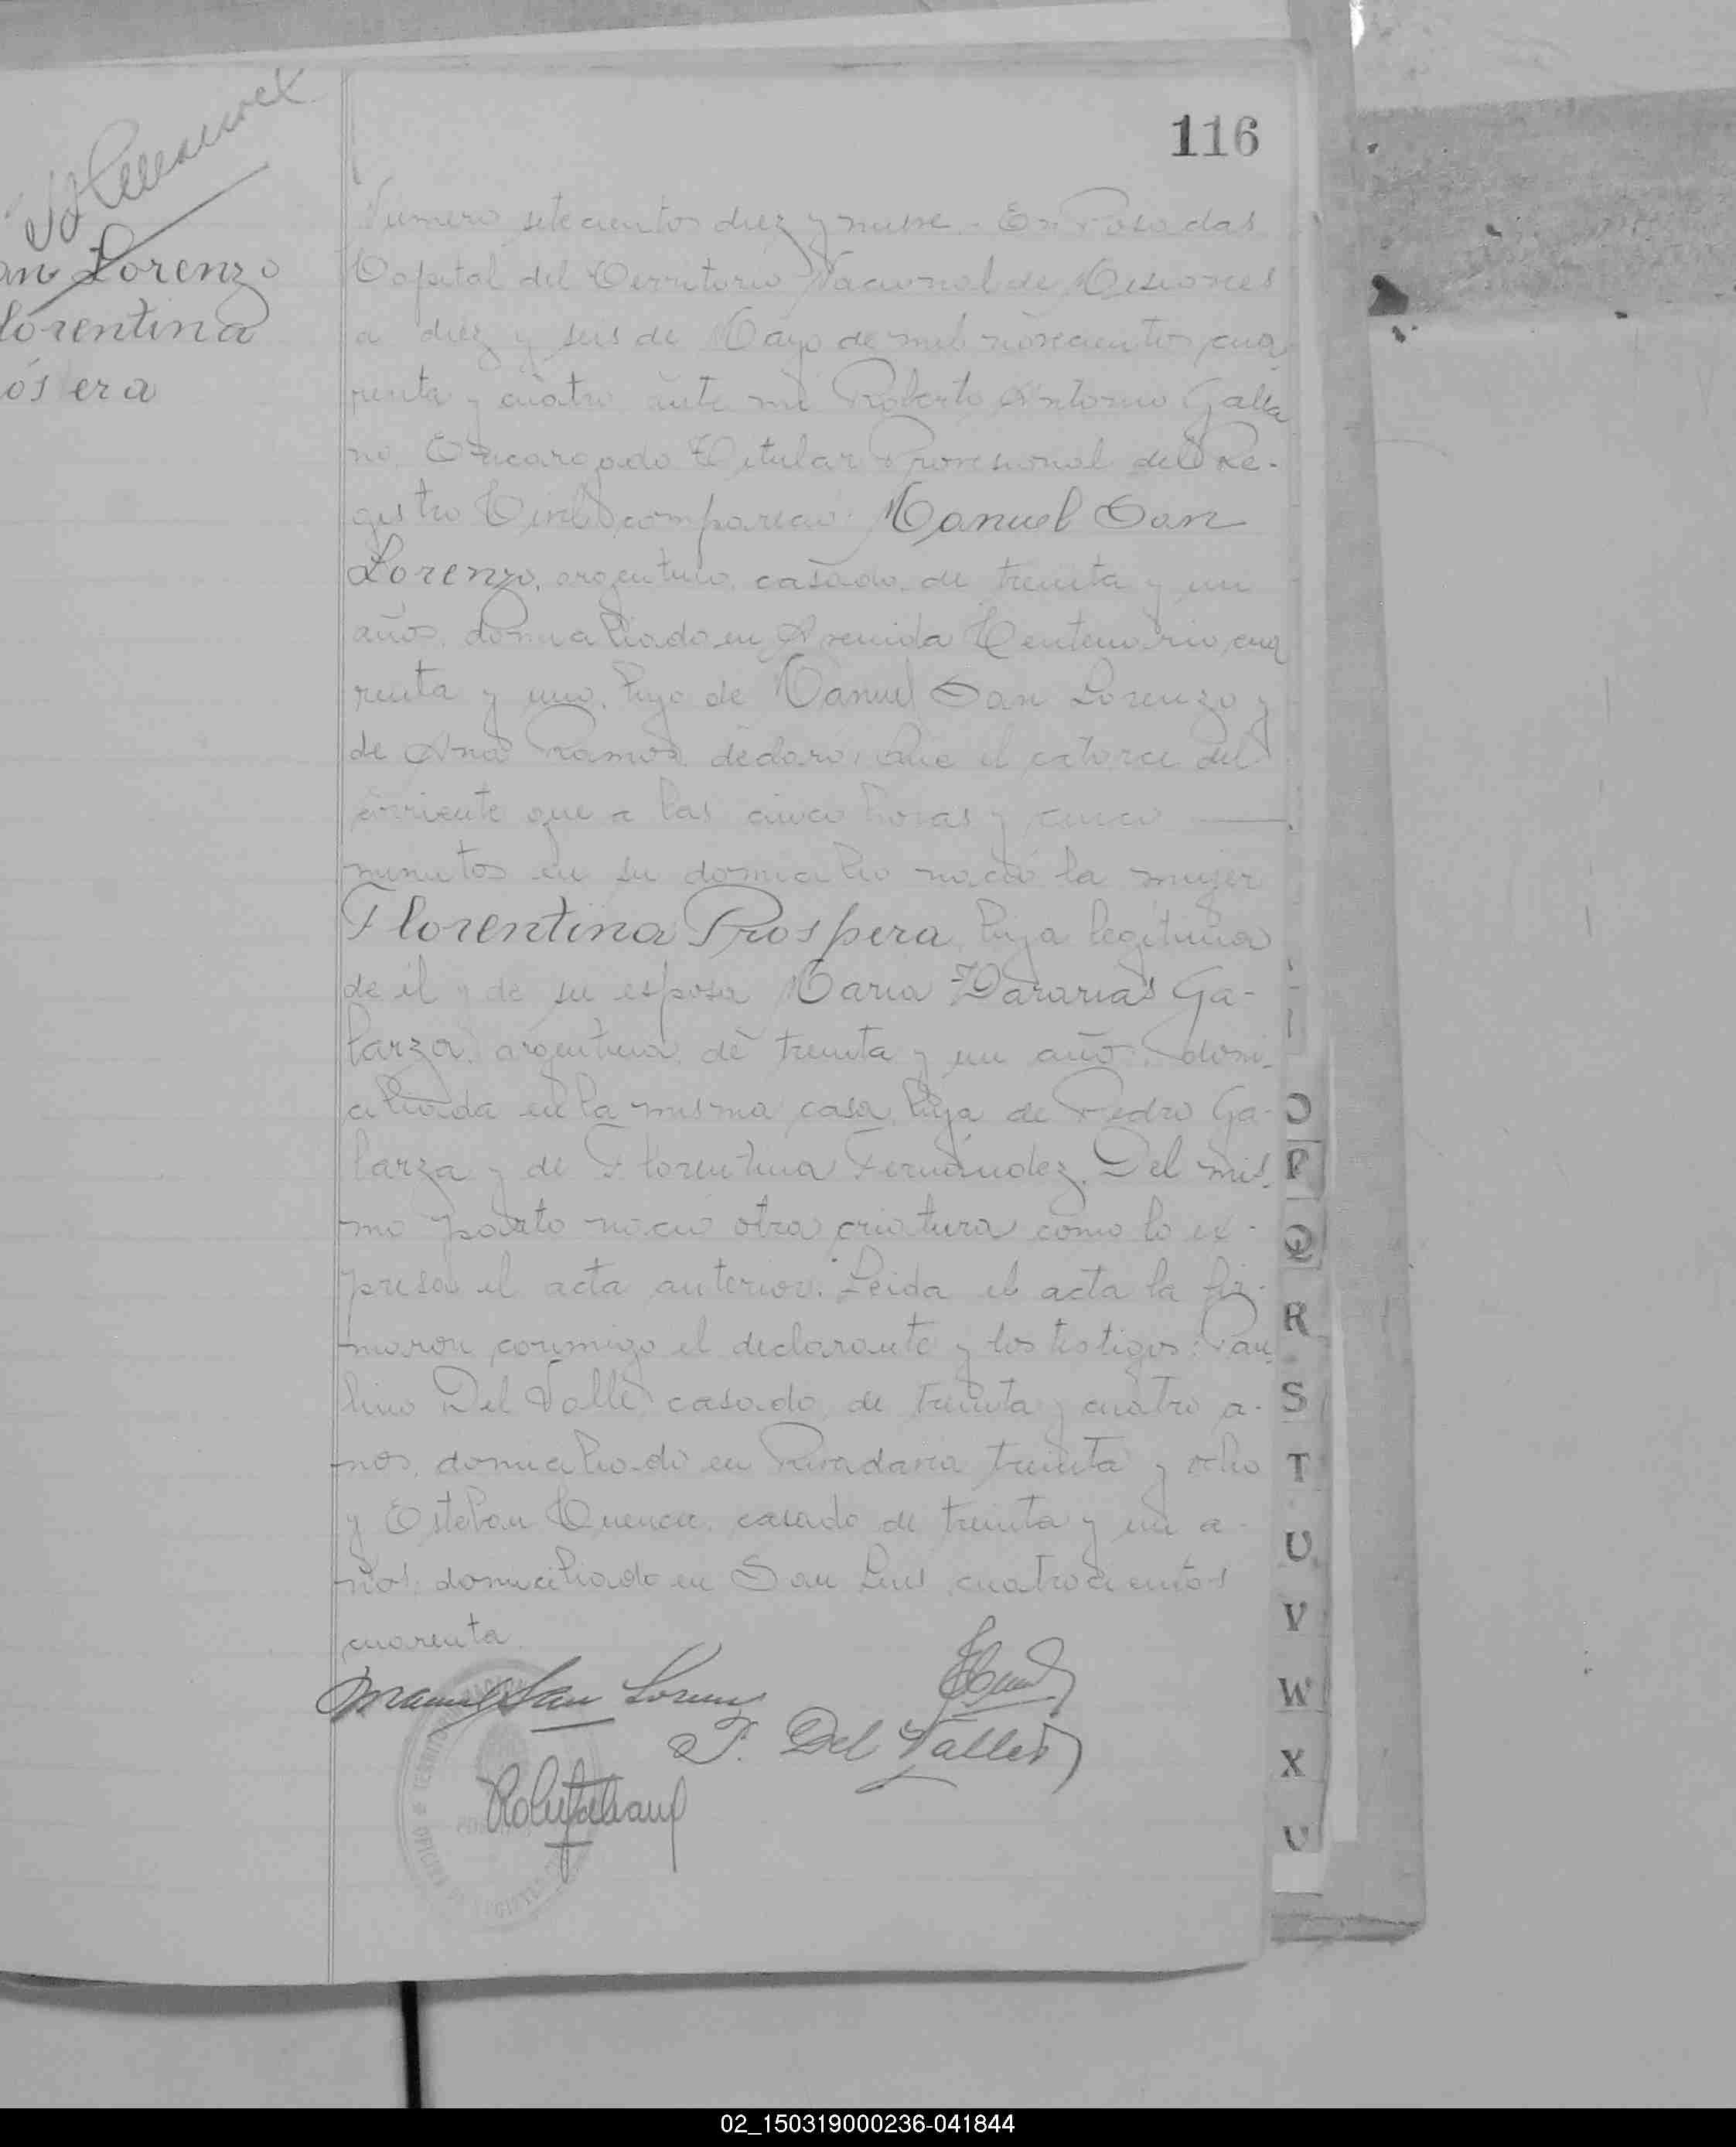 116
an Lorenzo
lorentina
óspera
Numero setecientos diez y nueve - En Posadas
Capital del Territorio Nacional de Misiones
a diez y seis de Mayo de mil novecientos cua
renta y cuatro ante mi Roberto Antonio Galia
no Encargado Titular Provisional del Re-
gistro Civil compareció Manuel San
Lorenzo, argentino, casado de treinta y un
años, domiciliado en Avenida Centenario cua
renta y uno, hijo de Manuel San Lorenzo y
de Ana Ramos, declaró: Que el catorce del
corriente que a las cinco horas y cinco
minutos en su domicilio nació la mujer
Florentina Prospera, hija legítima
de él y de su esposa Maria Ga-
larza, argentina, de treinta y un año, domi-
ciliada en la misma casa, hija de Pedro Ga-
larza y de Florentina Fernández. Del mis-
mo parto nació otra criatura como lo ex-
presa el acta anterior. Leida el acta la fir-
maron conmigo el declarante y los testigos: Pau
lino Del Valle, casado, de treinta y cuatro a-
ños, domiciliado en Rivadavia treinta y ocho
y Esteban casado de treinta y un a-
ños, domiciliado en San Luis cuatrocientos
cuarenta.
Manuel San Lorenzo
P. Del Valle
O
P
Q
R
S
T
U
V
W
X
02_150319000236-041844